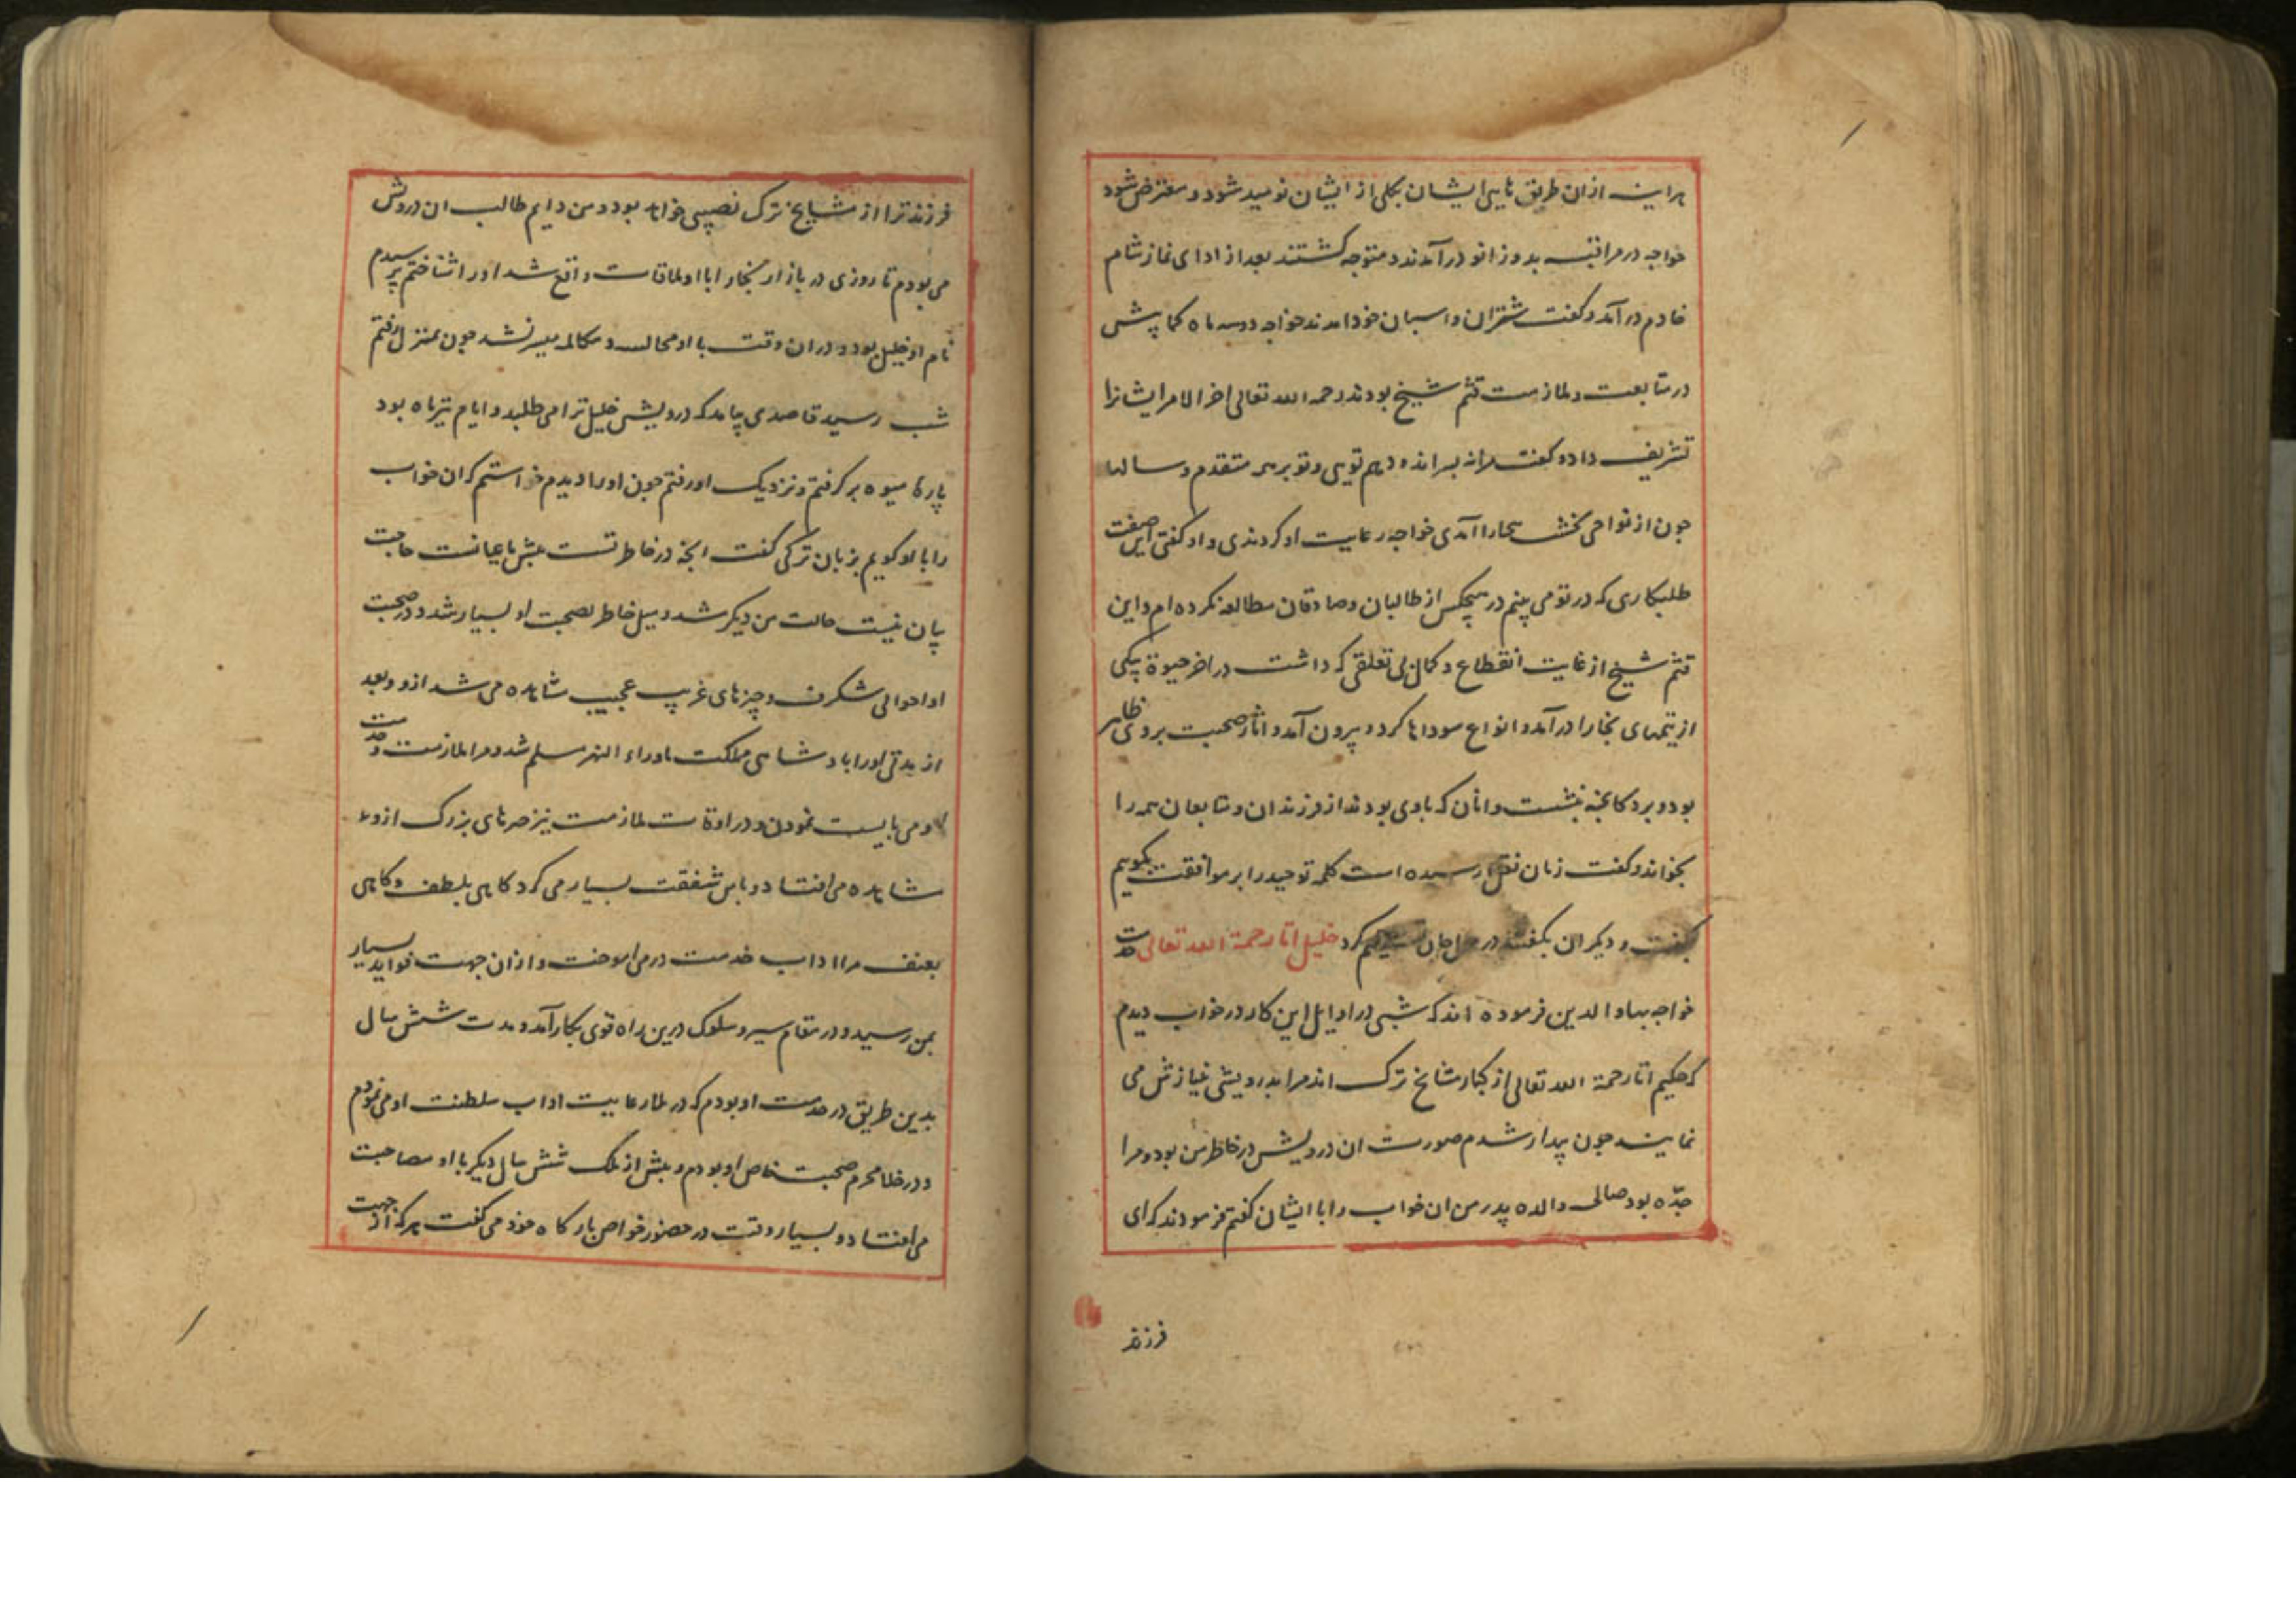 هراینه ازان طریق تایبی ایشان بکلی از ایشان نومید شود و معترض شود
خواجه در مراقبه بدو زانو در آمدند و متوجه گشتند بعد از ادای نماز شام
خادم در آمد و گفت شتران و اسبان خود امدند خواجه دو سه ماه کما پیش
در متابعت و ملازمت قثم شیخ بودند رحمه الله تعالی اخر الامر ایشانرا
تشریف داد و گفت مرا نه پسراند دهم تویی و تو بر همه متقدم و سالها
چون از نواحی نخشب ببخارا آمدی خواجه رعایت او کردندی و او گفتی این صفت
طلبکاری که در تو می بینم در هیچکس از طالبان و صادقان مطالعه نکرده ام و این
قثم شیخ از غایت انقطاع و کمال بی تعلقی که داشت در اخر حیوة بیکی
از تیمهای بخارا در آمد و انواع سوداها کرد و بیرون آمد و اثار صحبت بر وی ظاهر
بود و بر دکانچه نشست و انان که با وی بودند از فرزندان و متابعان همه را
بخواند و گفت زمان نقل رسیده است کلمه توحید را بر موافقت بگوییم
بگفت و دیگران بگفتند در حال جان تسلیم کرد خلیل اتا رحمة الله تعالی حضرت
خواجه بهاو الدین فرموده اند که شبی در اوایل این کار در خواب دیدم
که حکیم اتا رحمة الله تعالی از کبار مشایخ ترک اند مرا بدرویشی نیازش می
نمایند چون بیدار شدم صورت ان درویش در خاطر من بود و مرا
جدّه بود صالحه والده پدر من ان خواب را با ایشان گفتم فرمودند که ای
فرزند
فرزند ترا از مشایخ ترک نصیبی خواهد بود و من دایم طالب ان درویش
می بودم تا روزی در بازار بخارا با او ملاقات واقع شد او را شناختم پرسیدم
نام او خلیل بود و دران وقت با او مجالسه و مکالمه میسر نشد چون بمنزل رفتم
شب رسید قاصدی بیامد که درویش خلیل ترا می طلبد و ایام تیر ماه بود
پاره میوه بر گرفتم و نزدیک او رفتم چون او را دیدم خواستم که ان خواب
را با او گویم بزبان ترکی گفت انچه در خاطر تست پیش ما عیانست حاجت
بیان نیست حالت من دیگر شد و میل خاطر بصحبت او بسیار شد و در صحبت
او احوالی شگرف و چیزهای غریب عجیب مشاهده می شد ازو و بعد
از مدتی او را بادشاهی مملکت ماوراء النهر مسلم شد و مرا ملازمت و خدمت
او می بایست نمودن و در اوقات ملازمت نیز صرهای بزرگ ازو
مشاهده می افتاد و با من شفقت بسیار می کرد گاهی بلطف و گاهی
بعنف مرا اداب خدمت در می اموخت و ازان جهت فواید بسیار
بمن رسید و در مقام سیر و سلوک درین راه قوی بکار آمد و مدت شش سال
بدین طریق در خدمت او بودم که در ملا رعایت اداب سلطنت او می نمودم
و در خلا محرم صحبت خاص او بودم و پیش از ملک شش سال دیگر با او مصاحبت
می افتاد و بسیار وقت در حضور خواص بارگاه خود می گفت هر که از جهت